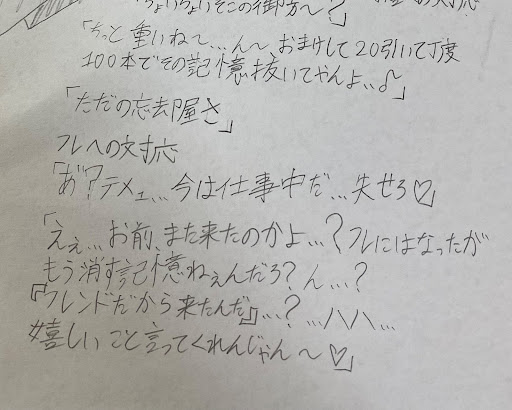 ちょいちょいそこの御方〜?
対応
「ちっと重いね〜...ん〜、おまけして20引いて丁度
100本でその記憶抜いてやんよ...♪」
「ただの忘却屋さ」
フレへの対応
「あ"?テメェ...今は仕事中だ...失せろ♡」
「えぇ...お前、また来たのかよ...?フレにはなったが
もう消す記憶ねぇんだろ?ん...?
『フレンドだから来たんだ』...?...ハハ...
嬉しいこと言ってくれんじゃん〜♡」